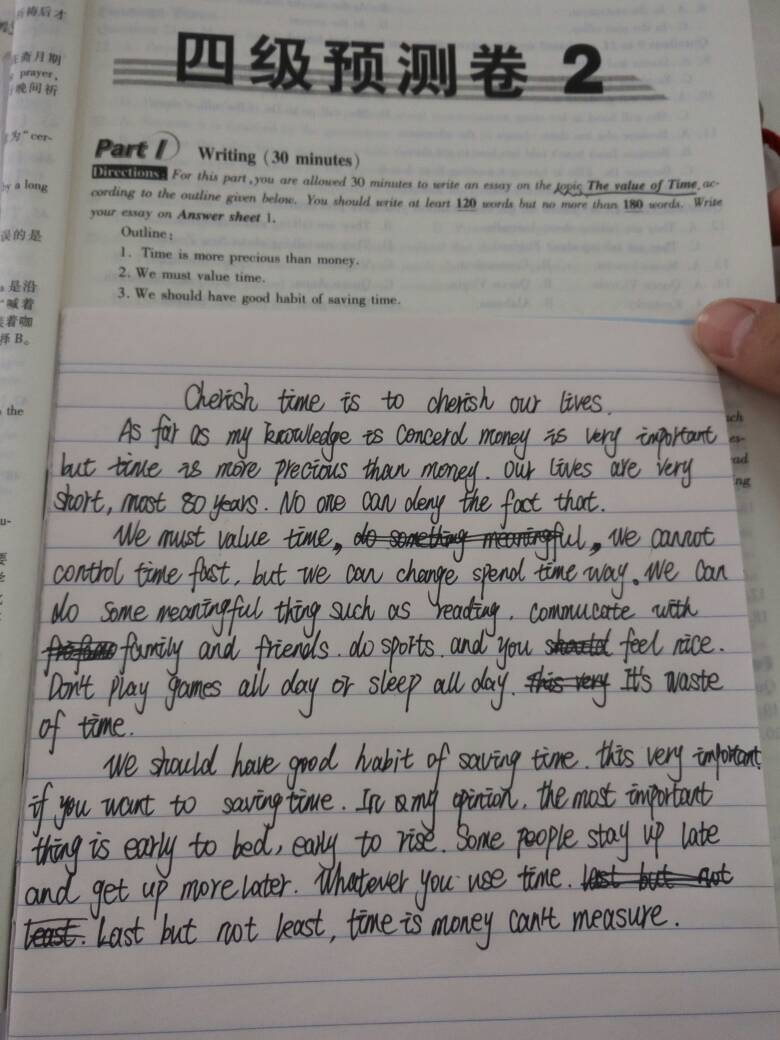 梅后才
斋月期
prayer,
晚间祈
为“cer-
by a long
误的是
是沿
喊着
着咖
择 B。
the
四级预测卷 2
Part I Writing (30 minutes)
Directions: For this part, you are allowed 30 minutes to write an essay on the topic The value of Time, ac-
cording to the outline given below. You should write at leart 120 words but no more than 180 words. Write
your essay on Answer sheet 1.
Outline:
1. Time is more precious than money.
2. We must value time.
3. We should have good habit of saving time.
Cherish time is to cherish our lives.
As far as my knowledge is concerd money is very important
but time is more precious than money. Our lives are very
short, most 80 years. No one can deny the fact that.
We must value time, do something meaningful, we cannot
control time fast, but we can change spend time way. We can
do some meaningful thing such as reading. commucate with
family and friends. do sports. and you should feel nice.
Don't play games all day or sleep all day. this very It's waste
of time.
We should have good habit of saving time. this very important
if you want to saving time. In my opinion, the most important
thing is early to bed, early to rise. Some people stay up late
and get up more later. Whatever you use time. last but not
least. Last but not least, time is money can't measure.